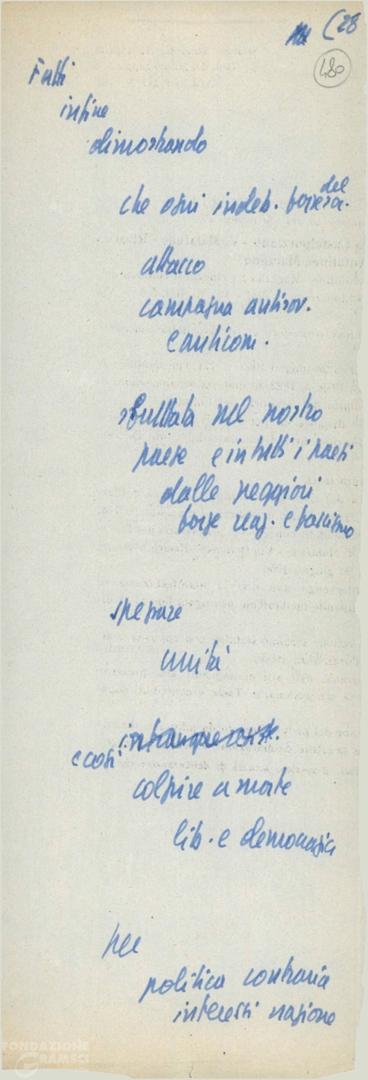 (28
480
Fatti
infine
dimostrando
che ogni indeb. del
attacco
campagna antisov.
e anticom.
sfruttata nel nostro
paese e in tutti i paesi
dalle peggiori
forze reaz. e fascismo
spezzare
unità
e così
colpire a morte
lib. e democrazia
per
politica contraria
interessi nazione
FONDAZIONE
GRAMSCI